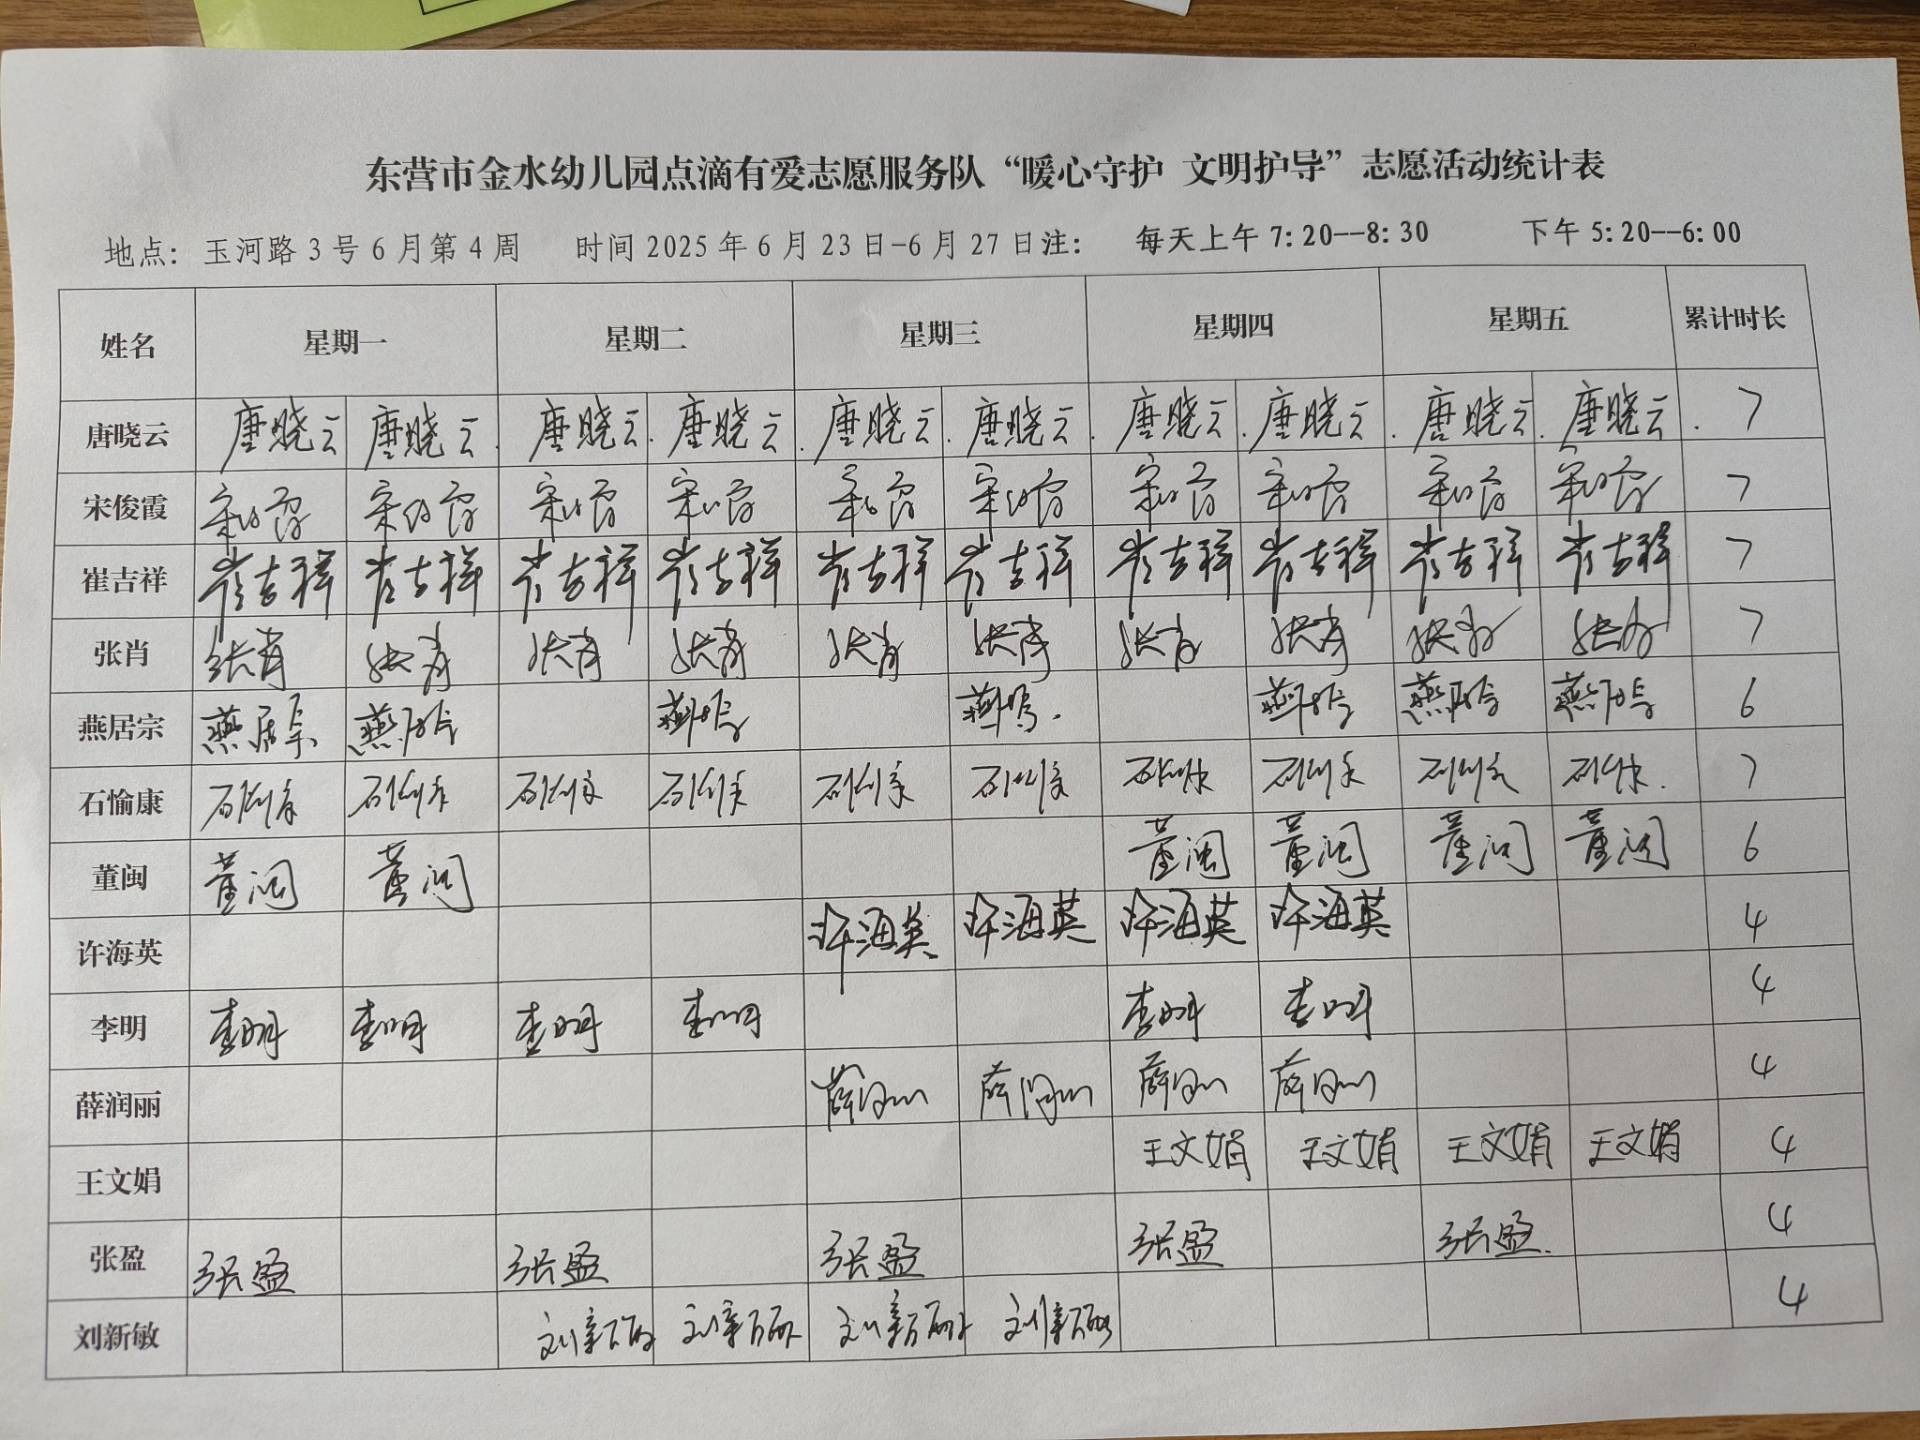 东营市金水幼儿园点滴有爱志愿服务队“暖心守护 文明护导”志愿活动统计表
地点：玉河路3号6月第4周 时间2025年6月23日-6月27日注： 每天上午7:20--8:30 下午5:20--6:00
姓名 星期一 星期二 星期三 星期四 星期五 累计时长
唐晓云 唐晓云 唐晓云. 唐晓云. 唐晓云. 唐晓云. 唐晓云. 唐晓云. 唐晓云. 唐晓云. 唐晓云. 7
宋俊霞 宋俊霞 宋俊霞 宋俊霞 宋俊霞 宋俊霞 宋俊霞 宋俊霞 宋俊霞 宋俊霞 宋俊霞 7
崔吉祥 崔吉祥 崔吉祥 崔吉祥 崔吉祥 崔吉祥 崔吉祥 崔吉祥 崔吉祥 崔吉祥 崔吉祥 7
张肖 张肖 张肖 张肖 张肖 张肖 张肖 张肖 张肖 张肖 张肖 7
燕居宗 燕居宗 燕居宗 燕居宗 燕居宗. 燕居宗 燕居宗 燕居宗 6
石愉康 石愉康 石愉康 石愉康 石愉康 石愉康 石愉康 石愉康 石愉康 石愉康 石愉康. 7
董闽 董闽 董闽 董闽 董闽 董闽 董闽 6
许海英 许海英 许海英 许海英 许海英 4
李明 李明 李明 李明 李明 李明 李明 4
薛润丽 薛润丽 薛润丽 薛润丽 薛润丽 4
王文娟 王文娟 王文娟 王文娟 王文娟 4
张盈 张盈 张盈 张盈 张盈 张盈. 4
刘新敏 4